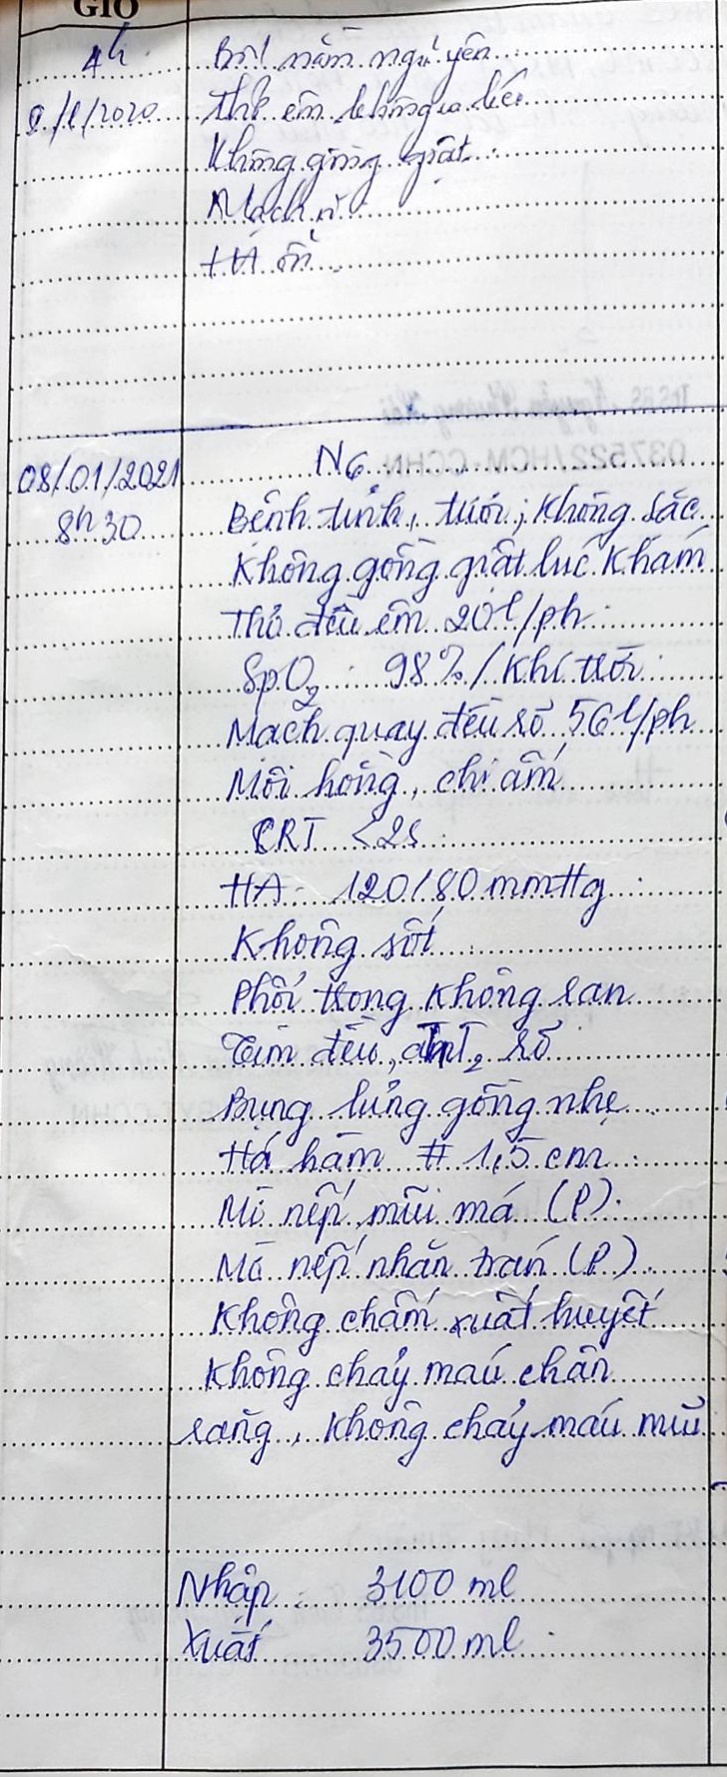 GIỜ
4h
nằm nguyên
8/1/2020 Thở êm không
Không gồng giật
Mạch rõ
HA ổn
08/01/2021 N6
8h30 Bệnh tỉnh, tươi, không sốc
Không gồng giật lúc khám
Thở đều êm 20l/ph
SpO2: 98% / Khí trời
Mạch quay đều rõ 56l/ph
Môi hồng, chi ấm
CRT <2s
HA: 120/80 mmHg
Không sốt
Phổi trong không ran
Tim đều, T1, T2 rõ
Bụng lưng gồng nhẹ
Há hàm # 1,5 cm
Mờ nếp mũi má (P).
Mờ nếp nhăn trán (P).
Không chấm xuất huyết
Không chảy máu chân
răng, không chảy máu mũi
Nhập: 3100 ml
Xuất 3500 ml